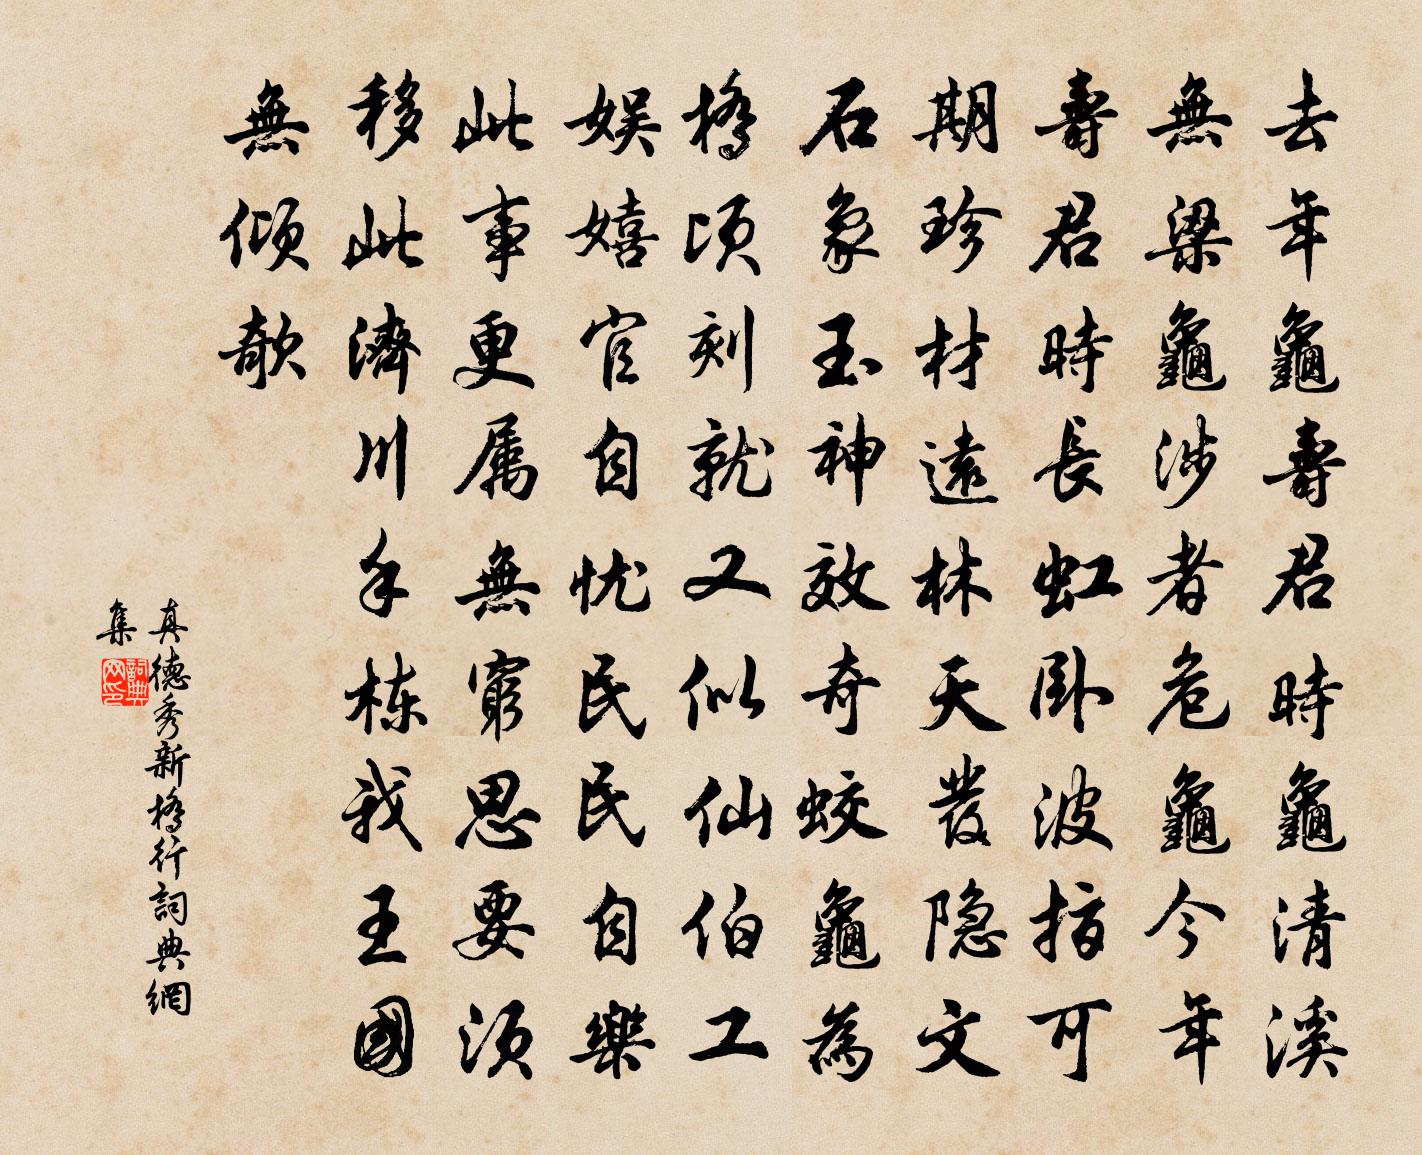 去年龜壽君時龜清溪
無梁龜涉者危龜今年
壽君時長虹臥波指可
期珍材遠林天發隐文
石象玉神效奇蛟龜為
橋頃刻就又似仙伯工
娱嬉官自忧民民自樂
此事更属無窮思要須
移此濟川手栋我王國
無倾欹
真德秀新橋行詞典網
集
詞典网印